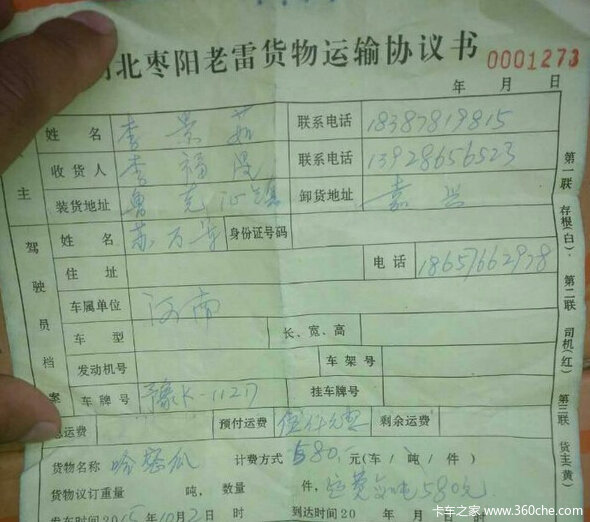 北枣阳老雷货物运输协议书 0001273
年 月 日
主
姓 名 李景茹 联系电话 18387819815
收货人 李福 联系电话 13928656523
装货地址 鲁克沁镇 卸货地址 嘉兴
驾驶员档案
姓 名 苏万 身份证号码
住 址 电 话 18651662978
车属单位 河南
车 型 长、宽、高
发动机号 车架号
车牌号 豫K-112 挂车牌号
总运费 预付运费 剩余运费
货物名称 哈密瓜 计费方式 580 元(车/吨/件)
货物议订重量 吨,数量 件, 运费 吨580元
发车时间2015年10月2日 到达时间20 年 月
第一联 存根(白)、第二联 司机(红) 第三联 货主(黄)
卡车之家 www.360che.com